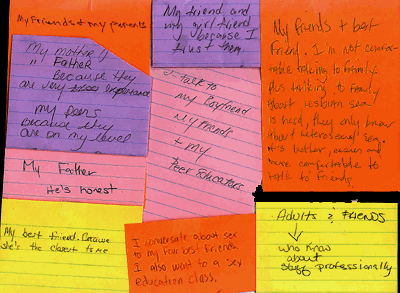 My friends + my parents
My friend and
my girlfriend
because I
trust them.
My friends + best
Friend. I'm not comfor-
table talking to family
plus talking to family
about lesbian sex
is hard, they only know
about heterosexual sex.
it's better, easier and
more comfortable to
talk to friends
My mother &
" Father
Because they
are very experience
my peers
because they
are on my level
I talk to
my Boyfriend
My Friends
+ my
Peer Educators
My Father
He's honest
My best friend. Because
she's the closest to me
I conversate about sex
to my four best friends
I also went to a sex
education class.
Adults & FRIENDS
who know
about
stuff professionally